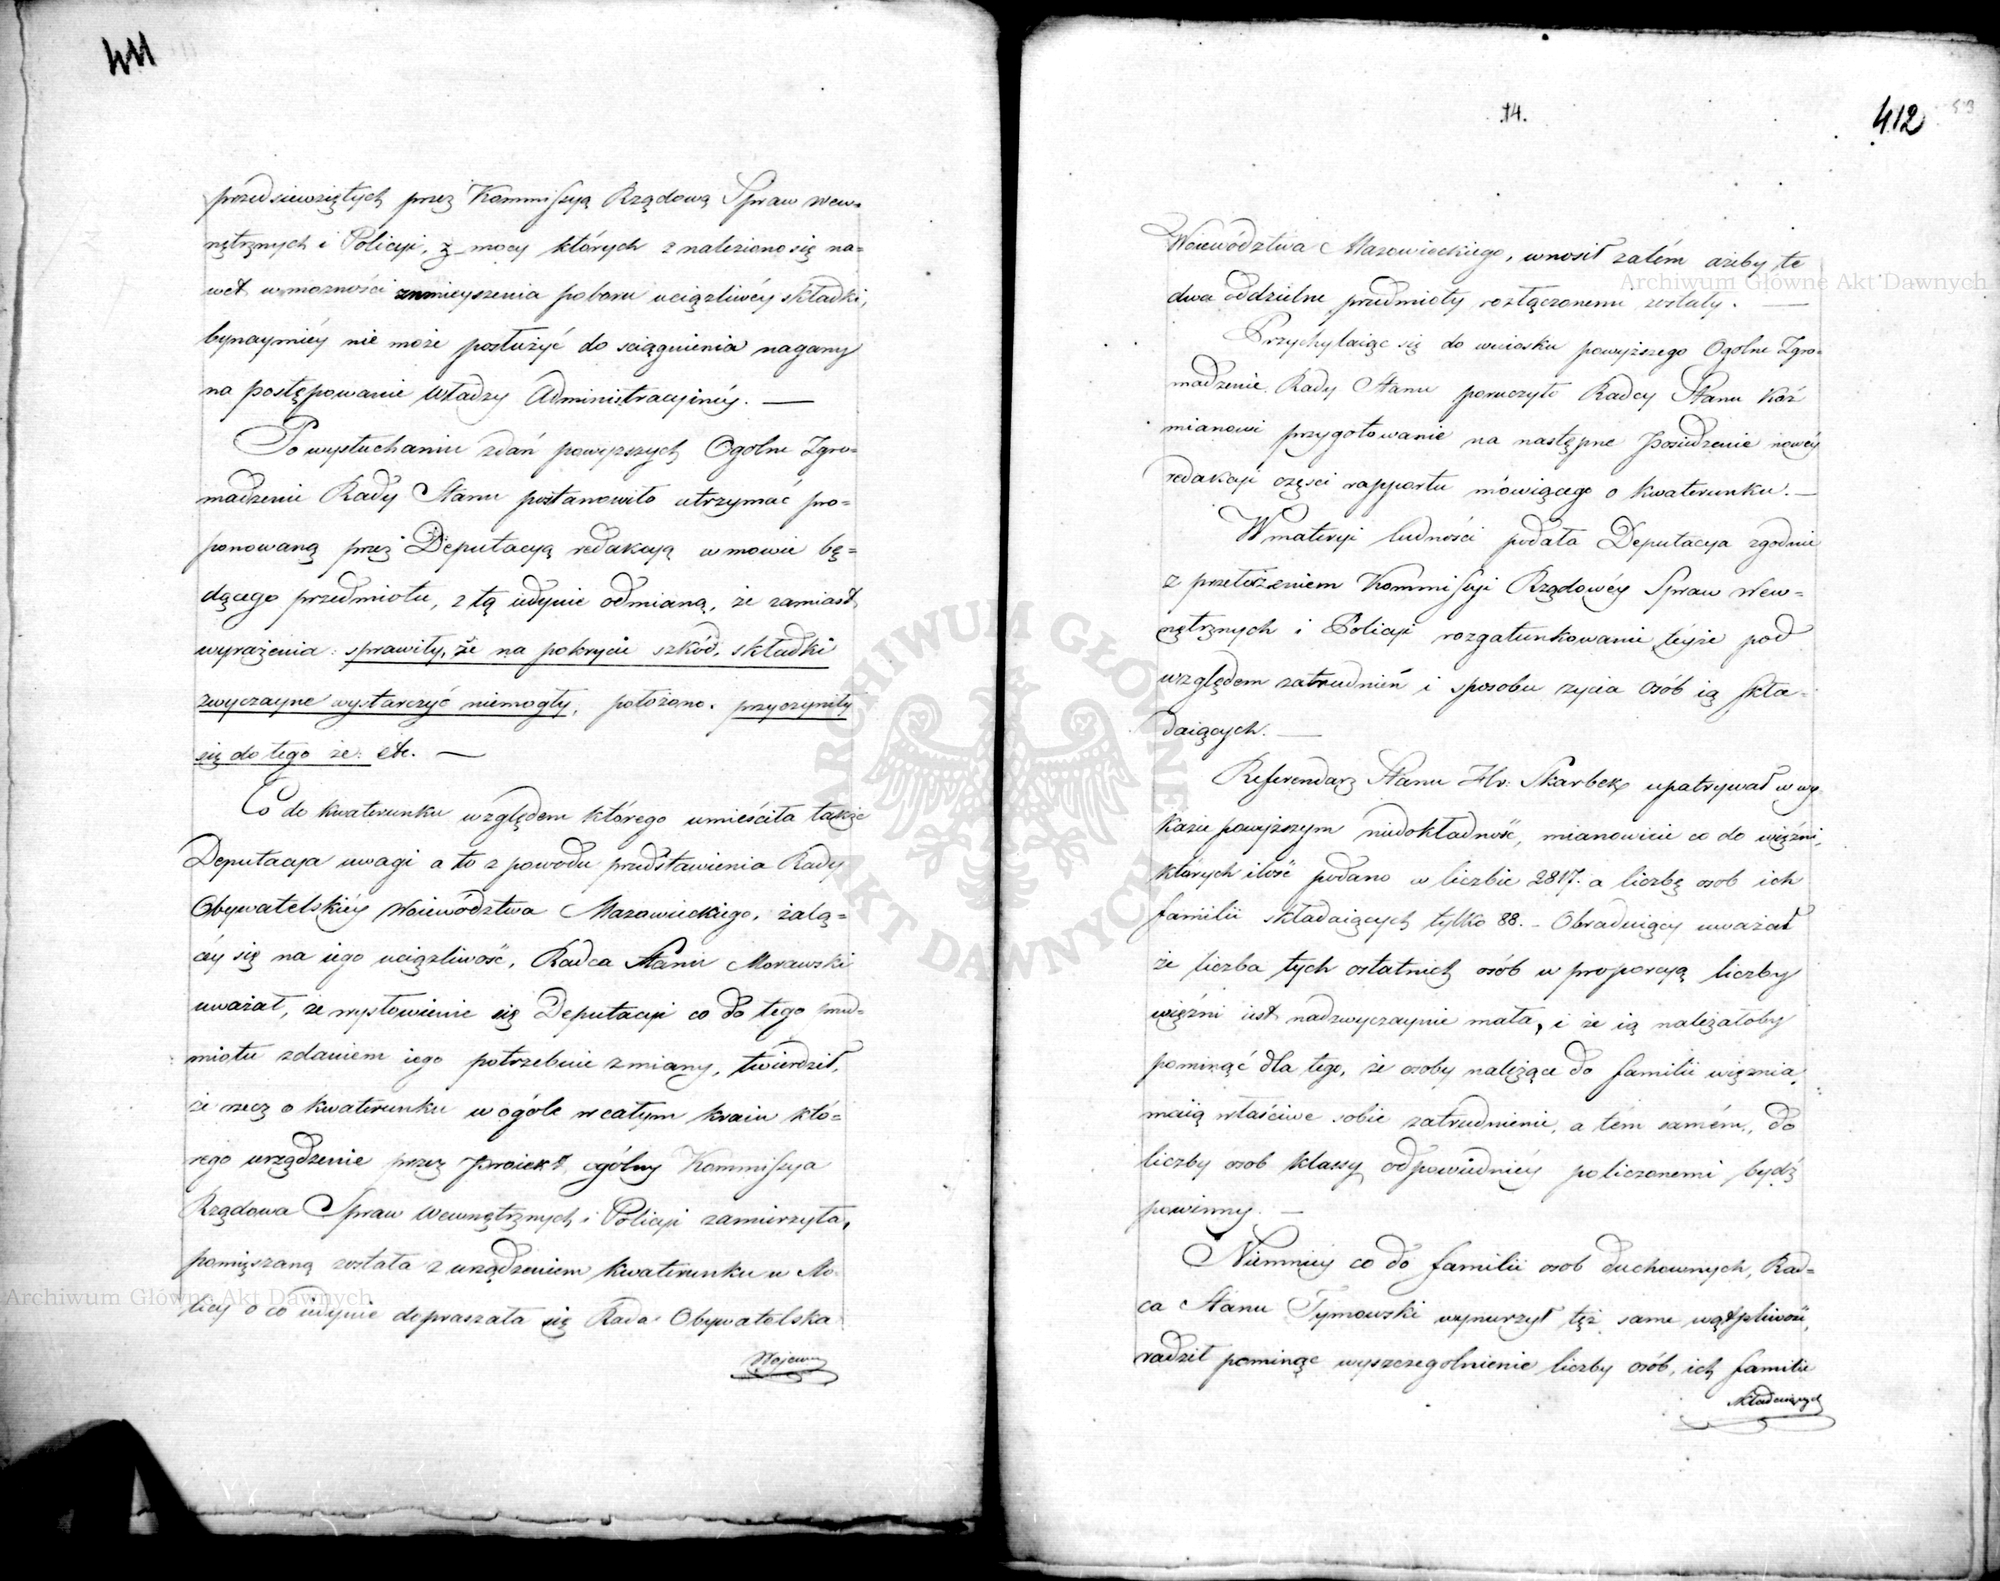 411
przedsiewziętych przez Kommissyą Rządową Spraw Wew=
nętrznych i Policyi, z mocy których znaleziono się na=
wet w możności zmnieyszenia poboru uciążliwéy składki,
bynaymniéy nie może posłużyć do sciągnienia nagany
na postępowanie Władzy Administracyinéy. —
Po wysłuchaniu zdań powyższych Ogólne Zgro=
madzenie Rady Stanu postanowiło utrzymać pro=
ponowaną przez Deputacyą redakcyą w mowie bę=
dącego przedmiotu, z tą iedynie odmianą, że zamiast
wyrażenia: sprawiły, że na pokrycie szkód, składki
zwyczayne wystarczyć niemogły, położono: przyczyniły
się do tego że: etc. —
Co do kwaterunku względem którego umieściła także
Deputacya uwagi a to z powodu przedstawienia Rady
Obywatelskiéy Województwa Mazowieckiego, żalą=
céy się na iego uciążliwość, Radca Stanu Morawski
uważał, że wysłowienie się Deputacyi co do tego przed=
miotu zdaniem iego potrzebuie zmiany, twierdził,
że rzecz o kwaterunku w ogóle w całym kraiu któ=
rego urządzenie przez proiekt ogólny Kommissya
Rządowa Spraw Wewnętrznych i Policyi zamierzyła,
pomięszaną została z urządzeniem kwaterunku w Sto=
licy o co iedynie dopraszała się Rada Obywatelska
Wojewó
14.
412
53
Województwa Mazowieckiego, wnosił zatém ażeby te
dwa oddzielne przedmioty rozłączonemi zostały. —
Przychylaiąc się do wniosku powyższego Ogólne Zgro=
madzenie Rady Stanu poruczyło Radcy Stanu Koź
mianowi przygotowanie na następne posiedzenie nowéy
redakcyi części rapportu mówiącego o kwaterunku. —
W materyi ludności podała Deputacya zgodnie
z przełożeniem Kommissyi Rządowéy Spraw Wew=
nętrznych i Policyi rozgatunkowanie téyże pod
względem zatrudnień i sposobu życia osób ią skła=
daiących. —
Referendarz Stanu Hr: Skarbek upatrywał w wy=
kazie powyższym niedokładność, mianowicie co do więźni,
których ilość podano w liczbie 2817. a liczbę osob ich
familii składaiących tylko 88. – Obraduiący uważał
że liczba tych ostatnich osób w proporcyą liczby
więźni iest nadzwyczaynie mała, i że ią należałoby
pominąć dla tego, że osoby należące do familii więźnia,
maią właściwe sobie zatrudnienie, a tém samém, do
liczby osob klassy odpowiedniéy policzonemi bydź
powinny. —
Niemniéy co do familii osob duchownych, Rad=
ca Stanu Tymowski wynurzył też same wątpliwość,
radził pominąć wyszczególnienie liczby osób, ich familie
składaiących
Archiwum Główne Akt Dawnych
Archiwum Główne Akt Dawnych
ARCHIWUM GŁÓWNE AKT DAWNYCH